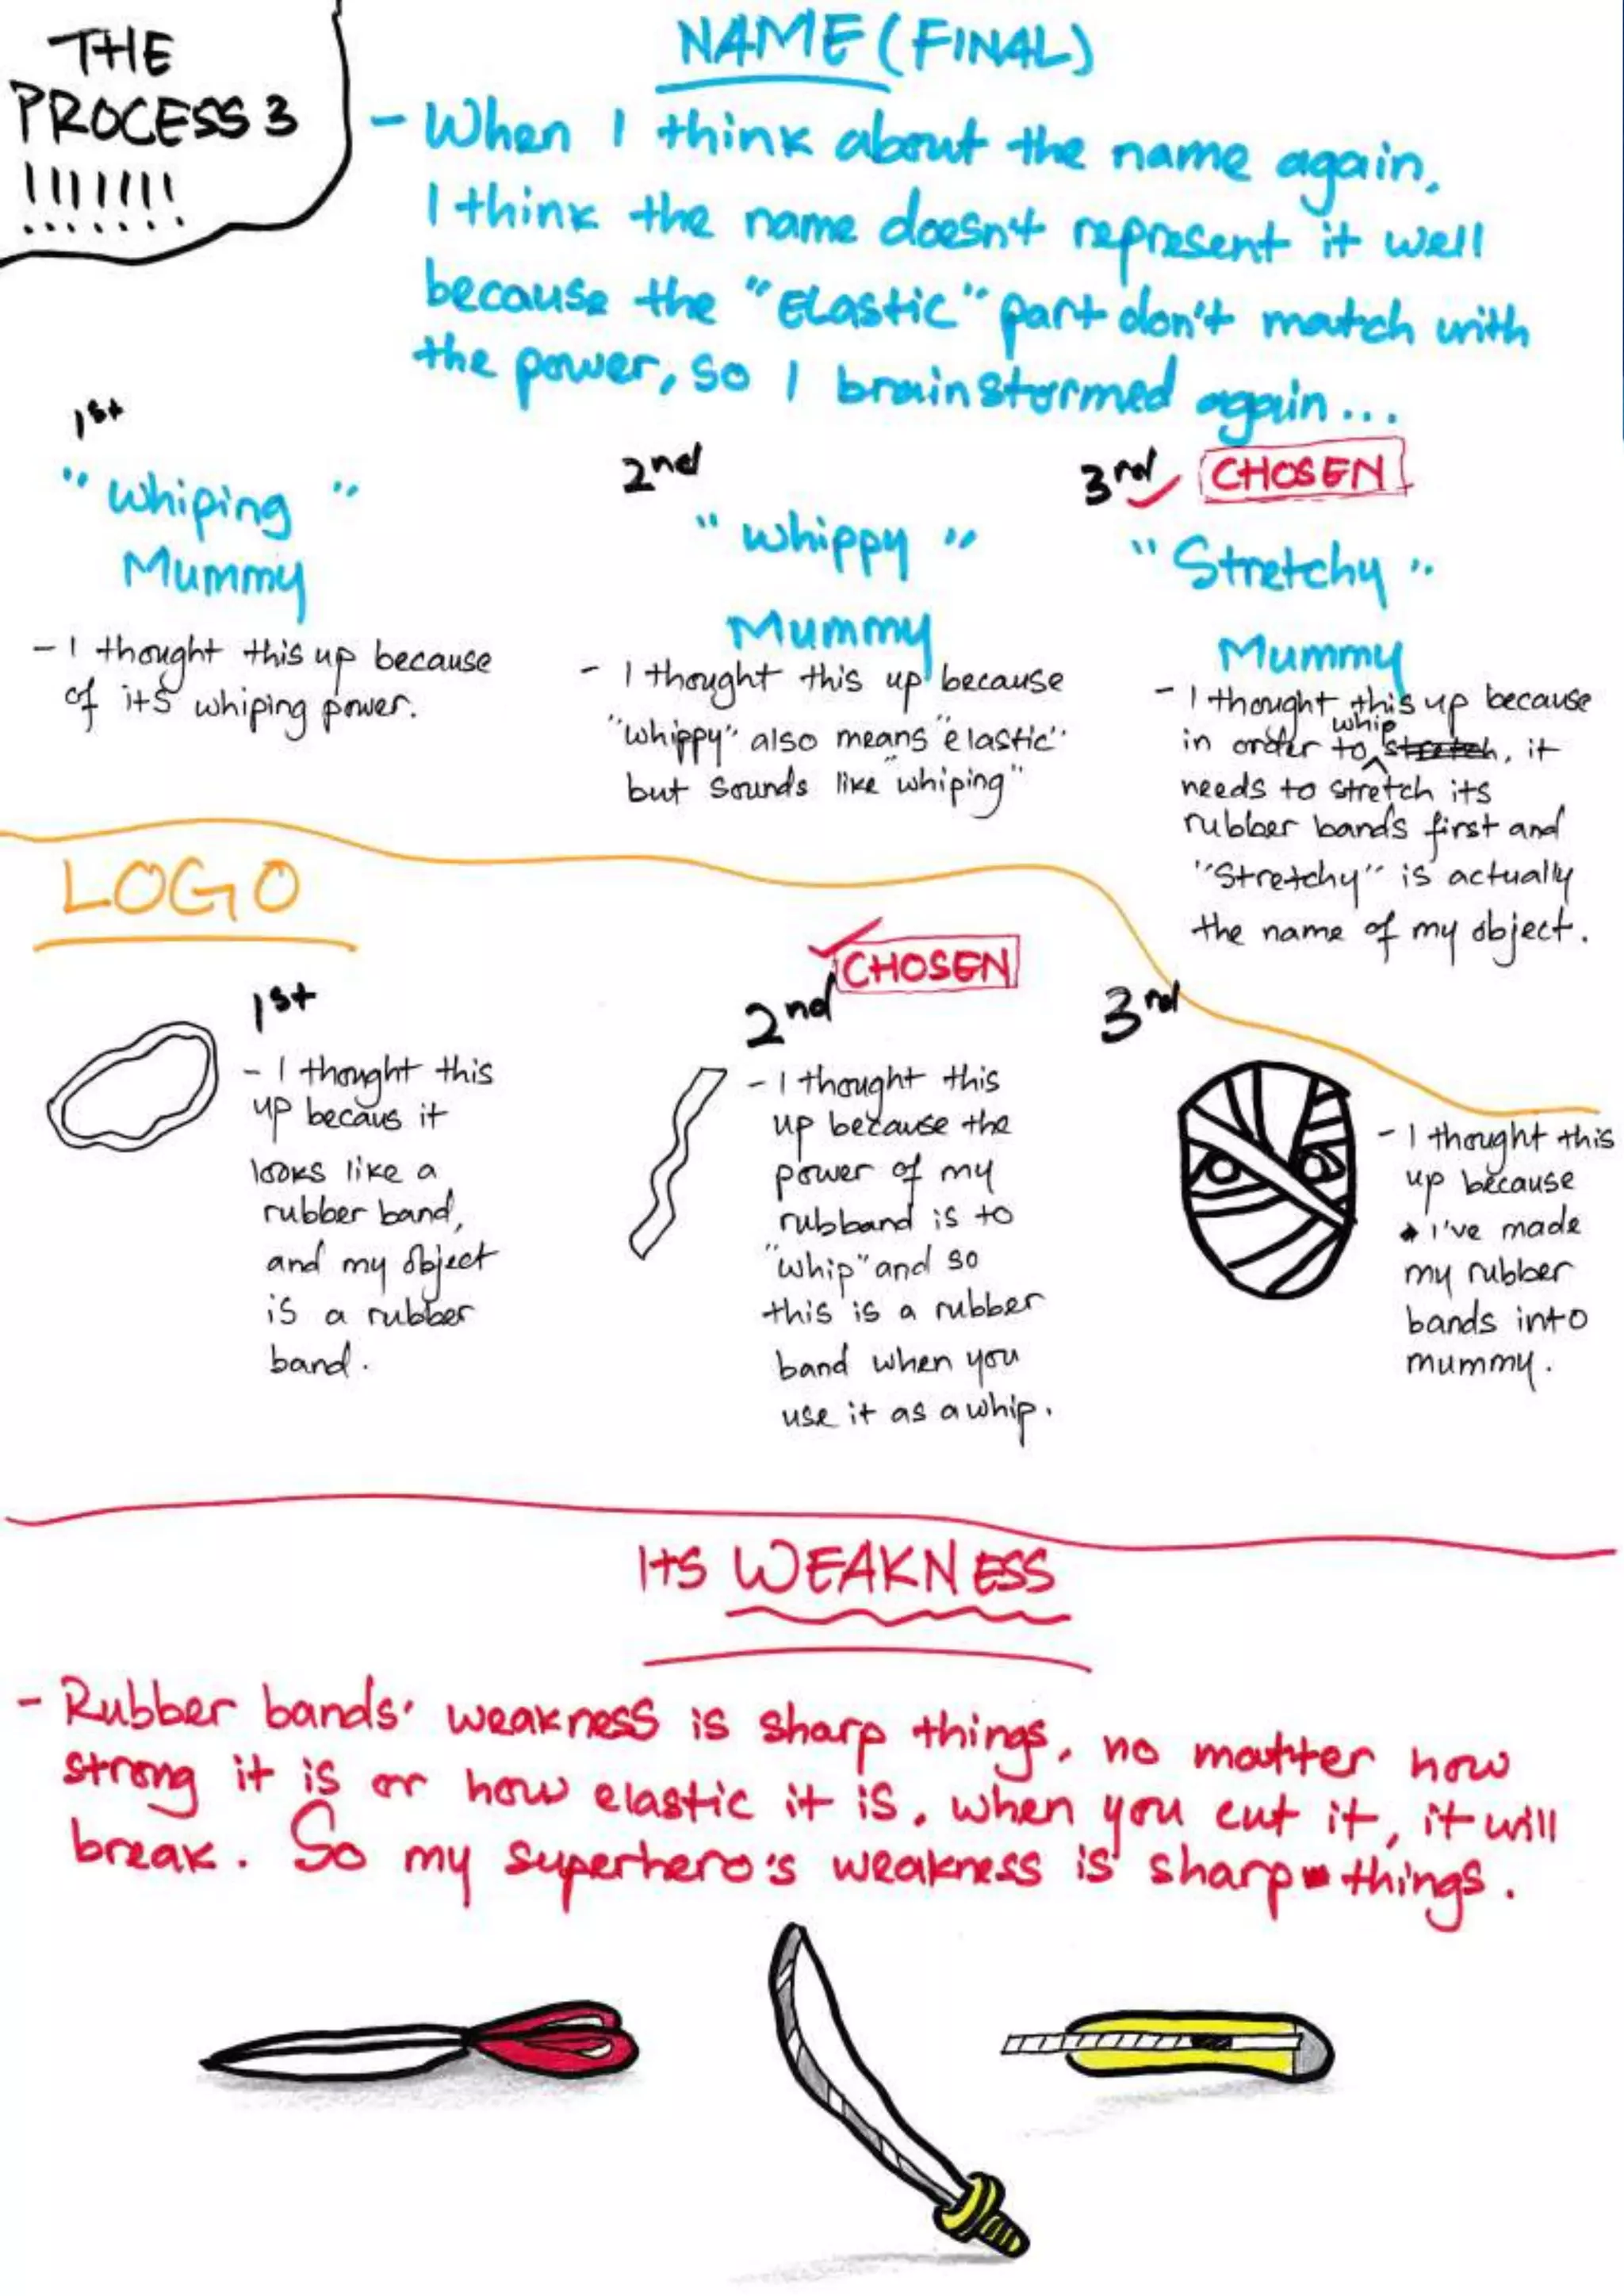 THE
PROCESS 3
!!!!!!!
NAME (FINAL)
- When I think about the name again,
I think the name doesn't represent it well
because the "ELastic" part don't match with
the power, so I brainstormed again...
1st
"Whiping"
Mummy
- I thought this up because
of itS whiping power.
2nd
"Whippy"
Mummy
- I thought this up because
"Whippy" also means "elastic"
but sounds like "whiping"
3rd CHOSEN
"Stretchy"
Mummy
- I thought this up because
in order to whip stretch, it
needs to stretch its
rubber bands first and
"Stretchy" is actually
the name of my object.
LOGO
1st
- I thought this
up becaus it
looks like a
rubber band,
and my object
is a rubber
band.
CHOSEN
2nd
- I thought this
up because the
power of my
rubband is to
"whip" and so
this is a rubber
band when you
use it as a whip.
3rd
- I thought this
up because
I've made
my rubber
bands into
mummy.
ItS WEAKNESS
- Rubber bands' weakness is sharp things, no matter how
strong it is or how elastic it is, when you cut it, it will
break. So my superhero's weakness is sharp things.